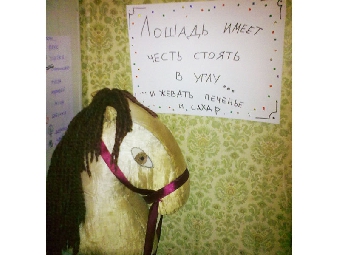 Лошадь имеет
честь стоять
в углу
... и жевать печенье
и сахар